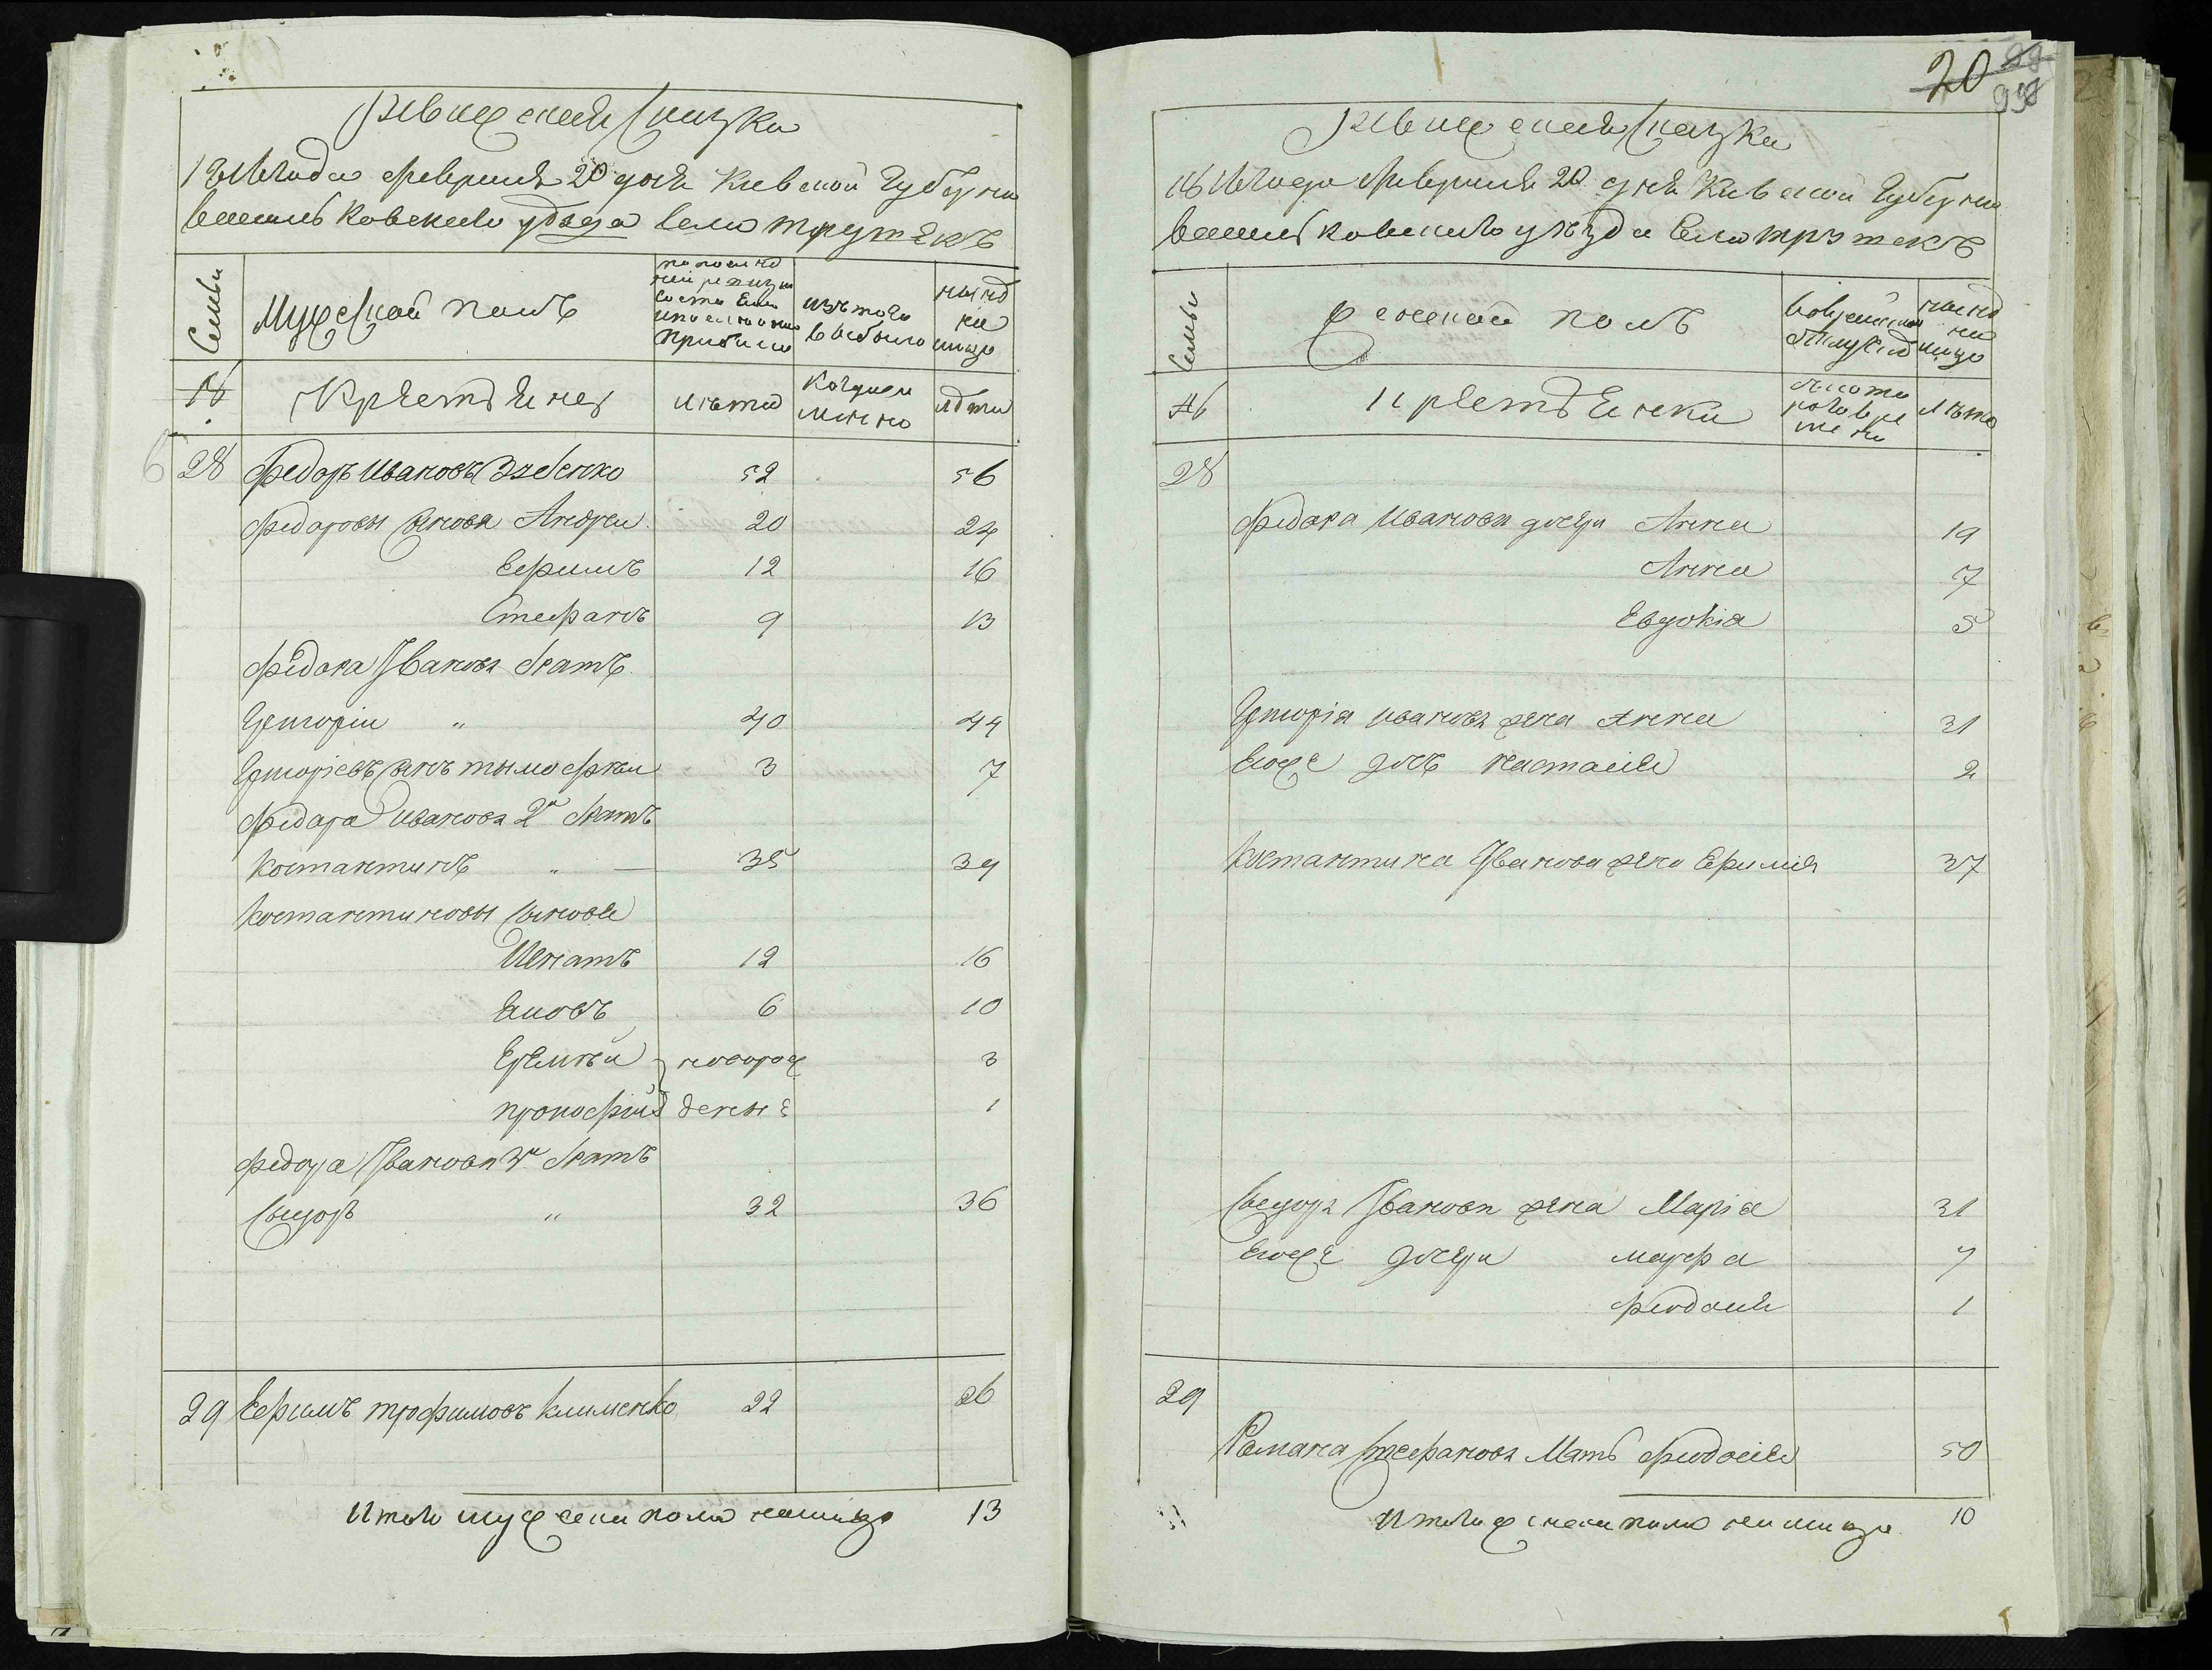 Ревижская Сказка
1816 года февраля 20 дня Киевской Губерни
васильковского уѣзда села трушекъ
Семьи
Мужеской полъ
по последней ревизии состояло и после оной прибыло
изъ того выбыло
нынѣ на лицо
№
Крестьяне
лѣта
когда именно
лѣта
28 Федоръ Ивановъ Зубенко 52 56
Федоровы сыновя Андреи 20 24
Ефимъ 12 16
Стефанъ 9 13
Федора Иванова братъ
Григории " 40 44
Григориевъ сынъ тымофѣи 3 7
Федора Иванова 2й братъ
Костантинъ " 35 39
Костантиновы сыновя
Игнатъ 12 16
Яковъ 6 10
Еремѣй новорож 3
прокофий деные 1
Федора Иванова 3й братъ
Сыдоръ " 32 36
29 Ефимъ трофимовъ клименко 22 26
Итого мужеска пола налицо 13
20
Ревижская Сказка
1816 года Февраля 20 дня Киевской Губерни
васильковского уѣзда села трушекъ
Семьи
Женской полъ
во временной отлучкѣ
нынѣ на лицо
№
крестьянки
съ которого времени
лѣта
28
Федора Иванова дочери Анна 19
Анна 7
Евдокія 5
Григорія Иванова жена Анна 31
Егоже дочь настасия 2
Костантина Иванова жена Ефимия 37
Сыдора Иванова жена Марія 31
Егоже дочери марфа 7
феодосия 1
29
Романа Стефанова Мать феодосия 50
Итого женска пола налицо 10